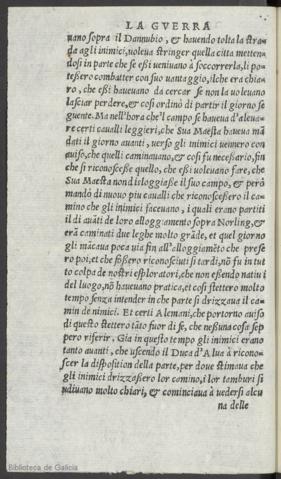 LA GVERRA
uano sopra il Dannubio, & hauendo tolta la stra-
da agli inimici, uoleua stringer quella citta metten-
dosi in parte che se eßi ueniuano à soccorrerla, li po-
teßero combatter con suo uantaggio, ilche era chia-
ro, che eßi haueuano da cercar se non la uoleuano
lasciar perdere, & cosi ordinò di partir il giorno se
guente. Ma nell'hora che'l campo se haueua d'aleua-
re certi caualli leggieri, che Sua Maesta haueua mã
dati il giorno auanti, uerso gli inimici uennero con
auiso, che quelli caminauano, & cosi fu neceßario, fin
che si riconosceße quello, che eßi uoleuano fare, che
Sua Maesta non disloggiaße il suo campo, & però
mandò di nuouo piu caualli che riconosceßero il ca-
mino che gli inimici faceuano, i quali erano partiti
il dì auãti de loro alloggiamento sopra Norling, &
erã caminati due leghe molto grãde, et quel giorno
gli mãcaua poca uia fin all'alloggiamẽto che prese
ro poi, et che fößero riconosciuti sì tardi, nõ fu in tut
to colpa de nostri esploratori, che non eßendo natiui
del luogo, nõ haueuano pratica, et cosi stettero molto
tempo senza intender in che parte si drizzaua il ca-
min de nimici. Et certi Alemani, che portorno auiso
di questo stettero tãto fuor di se, che neßuna cosa sep
pero riferir. Gia in questo tempo gli inimici erano
tanto auanti, che uscendo il Duca d'Alua à ricono-
scer la disposition della parte, per doue stimaua che
gli inimici drizzaßero lor camino, i lor tamburi si
udiuano molto chiari, & cominciaua à uedersi alcu
na delle
Biblioteca de Galicia